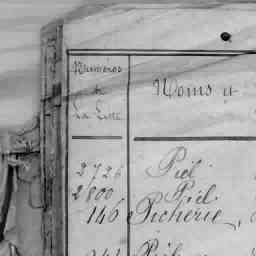 Numéros
de
La Liste
Noms
2726 Piel
2800 Piel
146 Picherie,